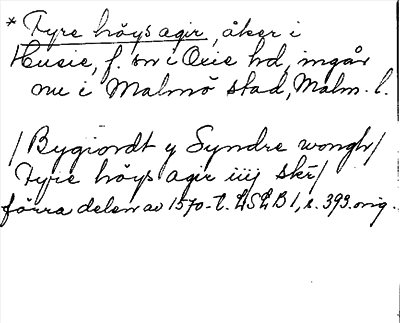 * Fyre höys agir, åker i
Husie, f. sn i Oxie hd, ingår
nu i Malmö stad, Malm. l.
/Bygiordt y Syndre wongh/
Fyre höys agir iiij skr/
förra delen av 1570-t. LSLB 1, s. 393. orig.